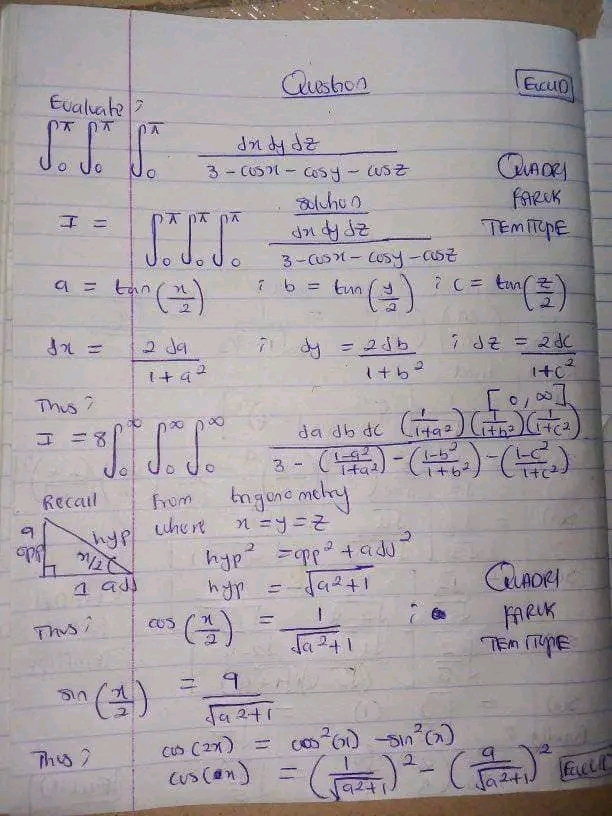 Question
EucliD
Evaluate;
∫₀^π ∫₀^π ∫₀^π dx dy dz / (3 - cosx - cosy - cosz)
QUADRI
FARUK
TEMITOPE
solution
I = ∫₀^π ∫₀^π ∫₀^π dx dy dz / (3 - cosx - cosy - cosz)
a = tan(x/2) ; b = tan(y/2) ; c = tan(z/2)
dx = 2da / (1+a²) ; dy = 2db / (1+b²) ; dz = 2dc / (1+c²)
Thus; [0, ∞]
I = 8∫₀^∞ ∫₀^∞ ∫₀^∞ da db dc (1/(1+a²))(1/(1+b²))(1/(1+c²)) / (3 - ((1-a²)/(1+a²)) - ((1-b²)/(1+b²)) - ((1-c²)/(1+c²)))
Recall From trigonometry
where x = y = z
a
opp
hyp
x/2
1 adj
hyp² = opp² + adj²
hyp = √(a²+1)
QUADRI
FARUK
TEMITOPE
Thus; cos(x/2) = 1/√(a²+1) ;
sin(x/2) = a/√(a²+1)
Thus; cos(2x) = cos²(x) - sin²(x)
cos(x) = (1/√(a²+1))² - (a/√(a²+1))²
EucliD